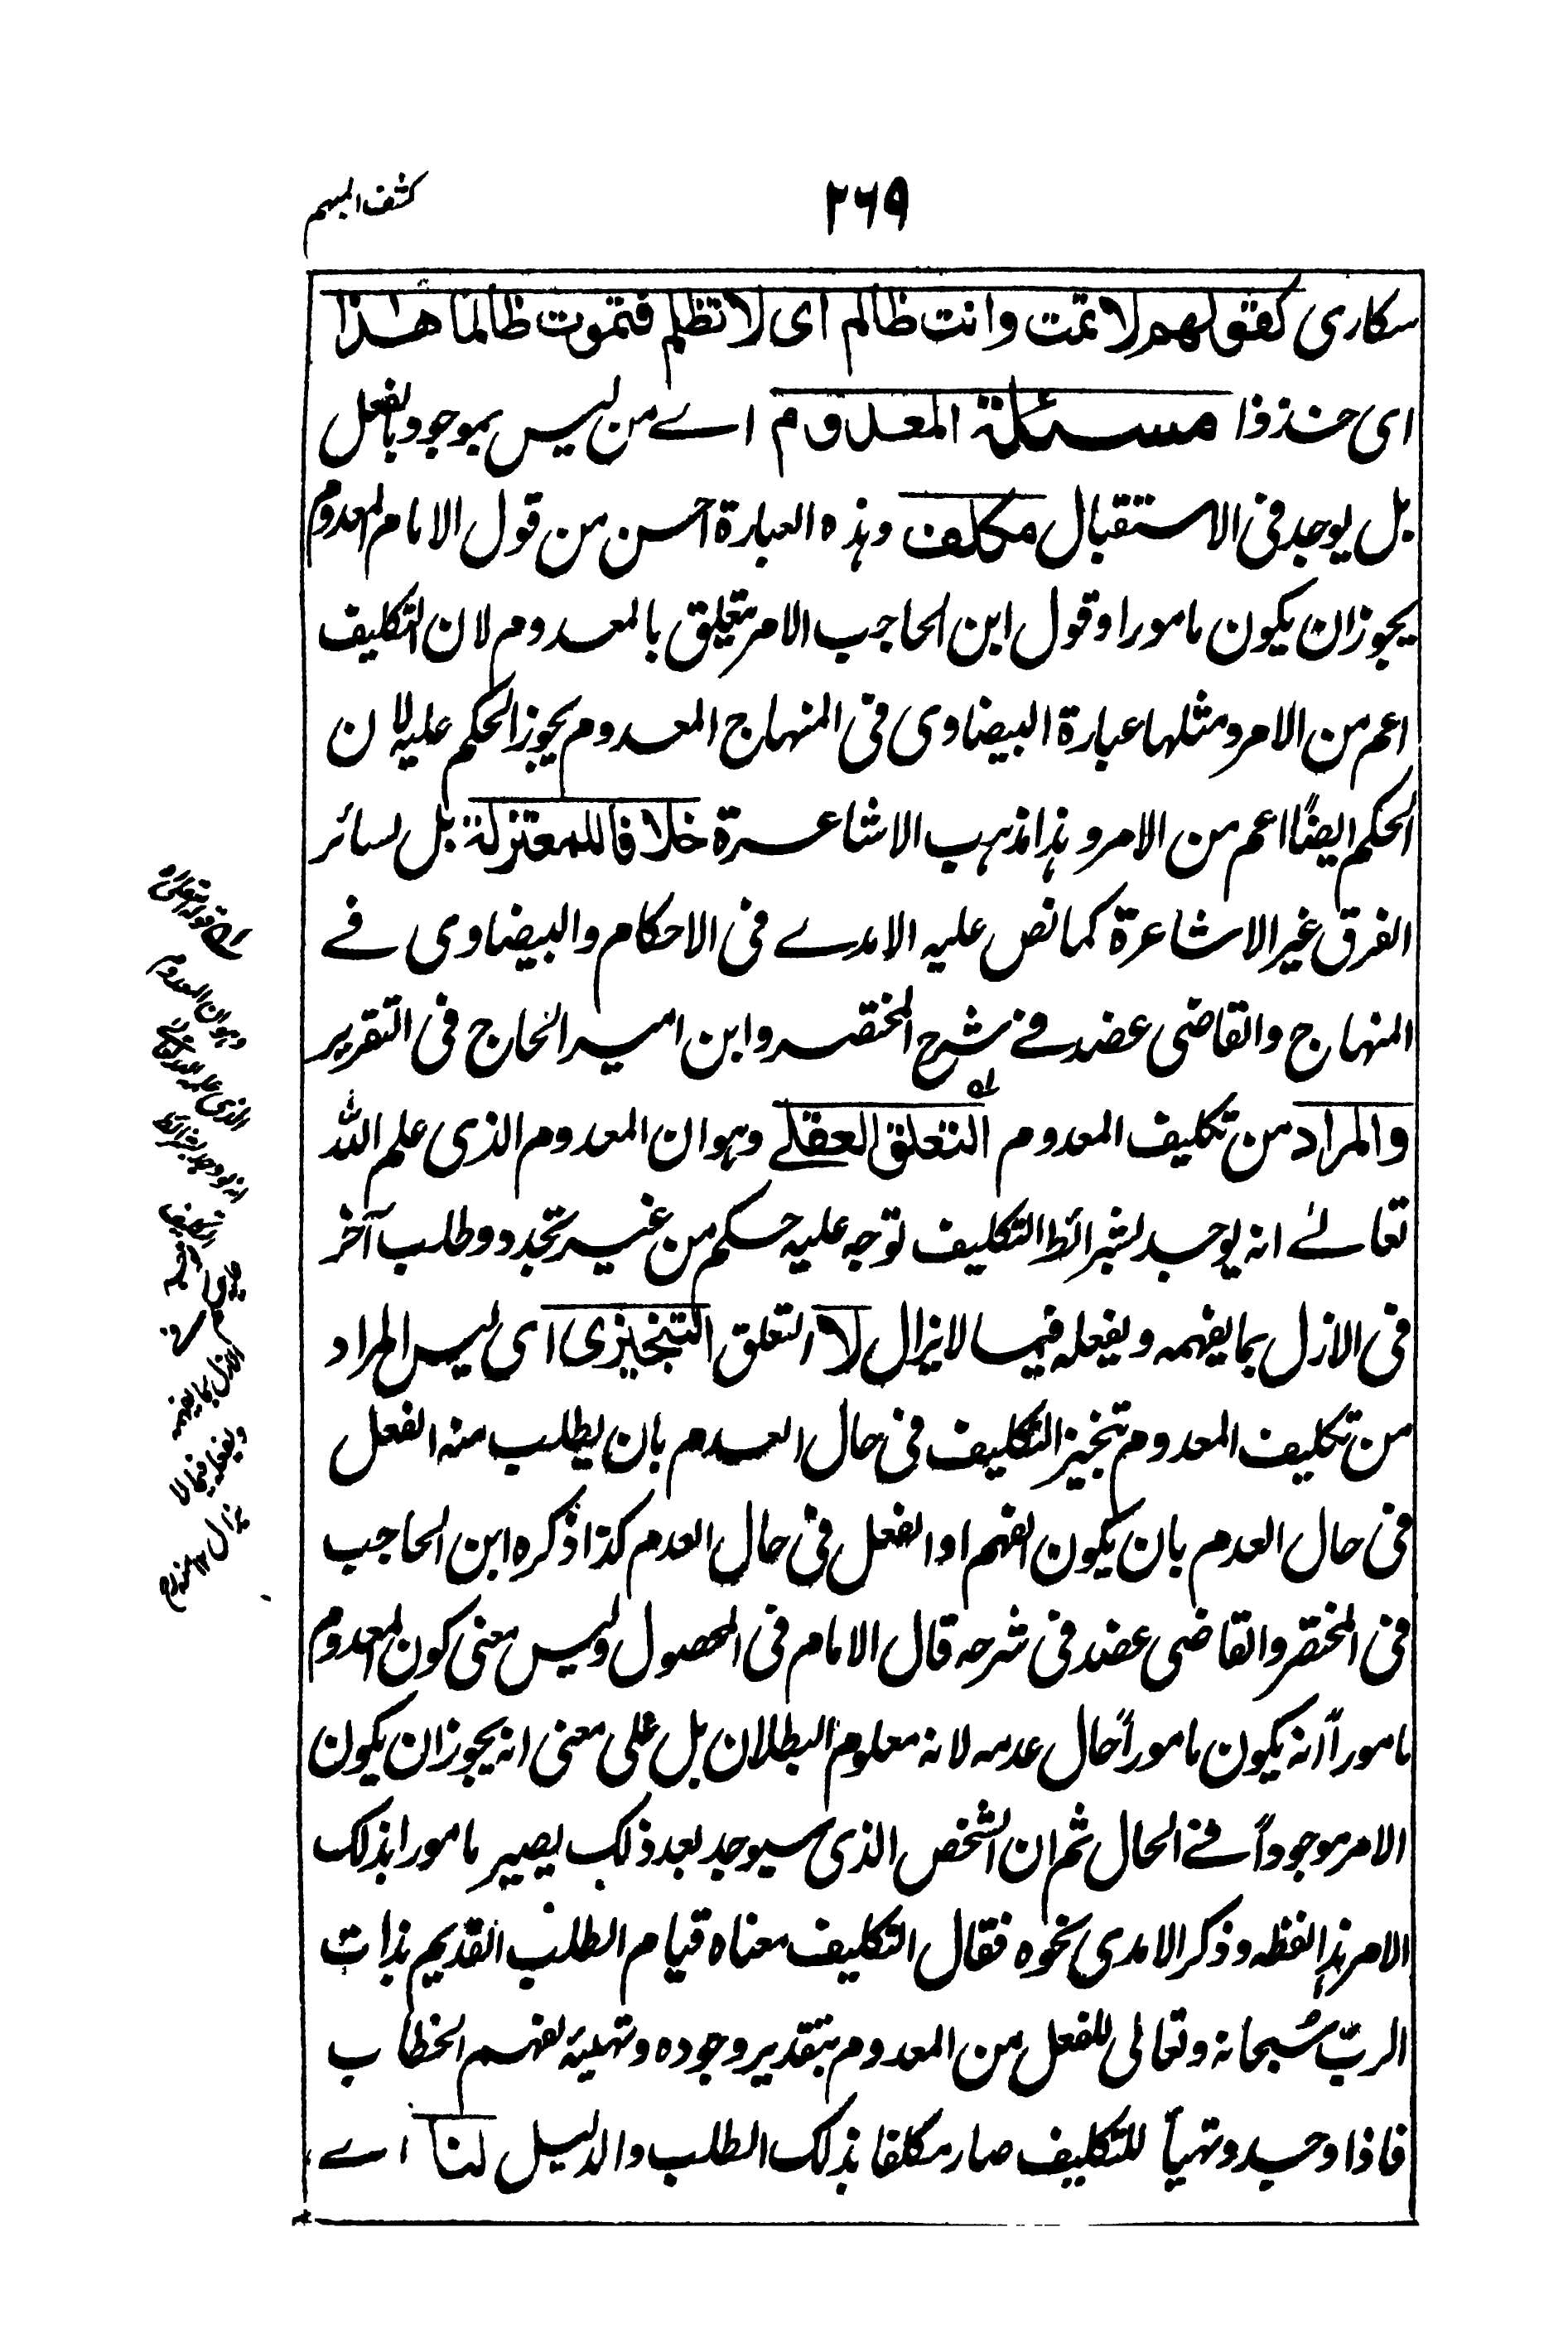 ٢٦٩
كشف المبهم
سكارى كقولهم لا تمت وانت ظالم اى لا تظلم فتموت ظالما هذا
اى خذ ذا مسئلة المعدوم اے من ليس بموجود بالفعل
بل يوجد فى الاستقبال مكلف وهذه العبارة احسن من قول الامام المعدوم
يجوز ان يكون مامورا وقول ابن الحاجب الامر يتعلق بالمعدوم لان التكليف
اعم من الامر ومثلها عبارة البيضاوى فى المنهاج المعدوم يجوز الحكم عليه لان
الحكم ايضًا اعم من الامر وهذا مذهب الاشاعرة خلافا للمعتزلة بل لسائر
الفرق غير الاشاعرة كما نص عليه الامدے فى الاحكام والبيضاوى فے
المنهاج والقاضى عضد فے شرح المختصر وابن امير الحاج فى التقرير
والمراد من تكليف المعدوم التعلق العقلے وهو ان المعدوم الذى علم الله
تعالىٰ انه يوجد بشرائط التكليف توجه عليه حكم من غير تجدد وطلب آخر
فى الازل بما يفهمه ويفعله فيما لا يزال لا التعلق التنجيزى اى ليس المراد
من تكليف المعدوم تنجيز التكليف فى حال العدم بان يطلب منه الفعل
فى حال العدم بان يكون الفهم او الفعل فى حال العدم كذا ذكره ابن الحاجب
فى المختصر والقاضى عضد فى شرحه قال الامام فى المحصول وليس معنى كون المعدوم
مامورا انه يكون ماموراً حال عدمه لانه معلوم البطلان بل على معنى انه يجوز ان يكون
الامر موجوداً فے الحال ثم ان الشخص الذى سيوجد بعد ذلك يصير مامورا بذلك
الامر هذا لفظه وذكر الامدى نحوه فقال التكليف معناه قيام الطلب القديم بذات
الربّ سُبحانه وتعالى للفعل من المعدوم بتقدير وجوده وتهيئه لفهم الخطاب
فاذا وجد وتهيأ للتكليف صار مكلفا بذلك الطلب والدليل لنا اے
قوله التعلق
وهو ان المعدوم
الذى علم الله تعالے
انه يوجد بشرائط
التكليف
الازل بما يفهمه
ويفعله فيما لا
يزال ١٢ منه